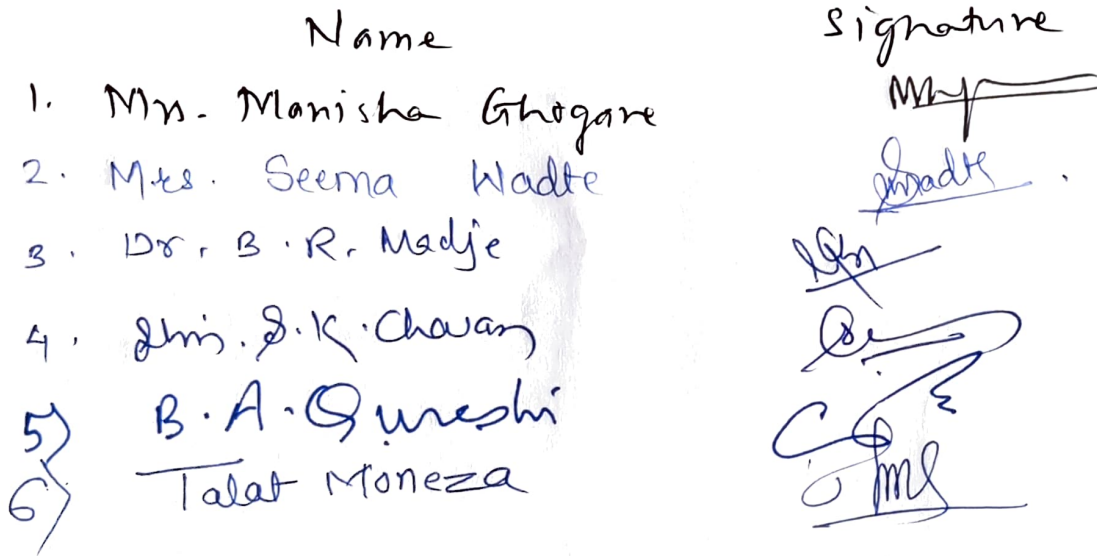 Name Signature
1. Mrs. Manisha Ghogare
2. Mrs. Seema Wadte Swadte
3. Dr. B. R. Madje
4. Shri. S. K. Chavan
5) B. A. Qureshi
6) Talat Moneza